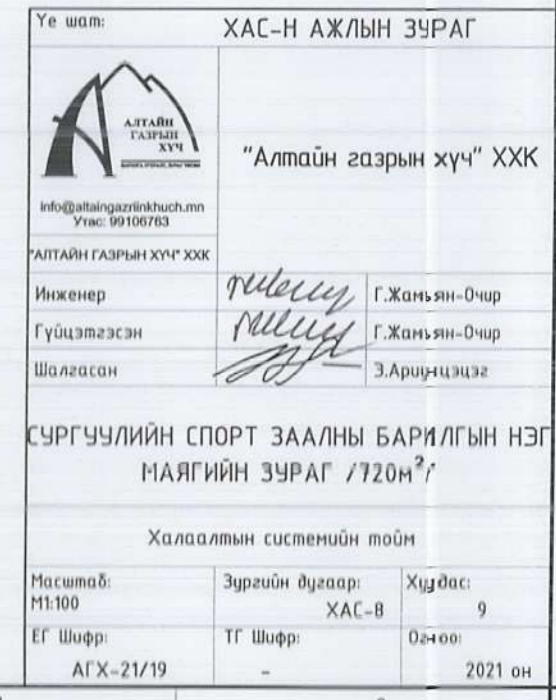 Үе шат:
ХАС-Н АЖЛЫН ЗУРАГ
АЛТАЙН
ГАЗРЫН
ХҮЧ
"Алтайн газрын хүч" ХХК
info@altaingazriinkhuch.mn
Утас: 99106763
"АЛТАЙН ГАЗРЫН ХҮЧ" ХХК
Инженер
Г.Жамъян-Очир
Гүйцэтгэсэн
Г.Жамъян-Очир
Шалгасан
З.Ариунцэцэг
СУРГУУЛИЙН СПОРТ ЗААЛНЫ БАРИЛГЫН НЭГ
МАЯГИЙН ЗУРАГ /720м²/
Халаалтын системийн тойм
Масштаб:
М1:100
Зургийн дугаар:
ХАС-8
Хуудас:
9
ЕГ Шифр:
АГХ-21/19
ТГ Шифр:
-
Огноо:
2021 он